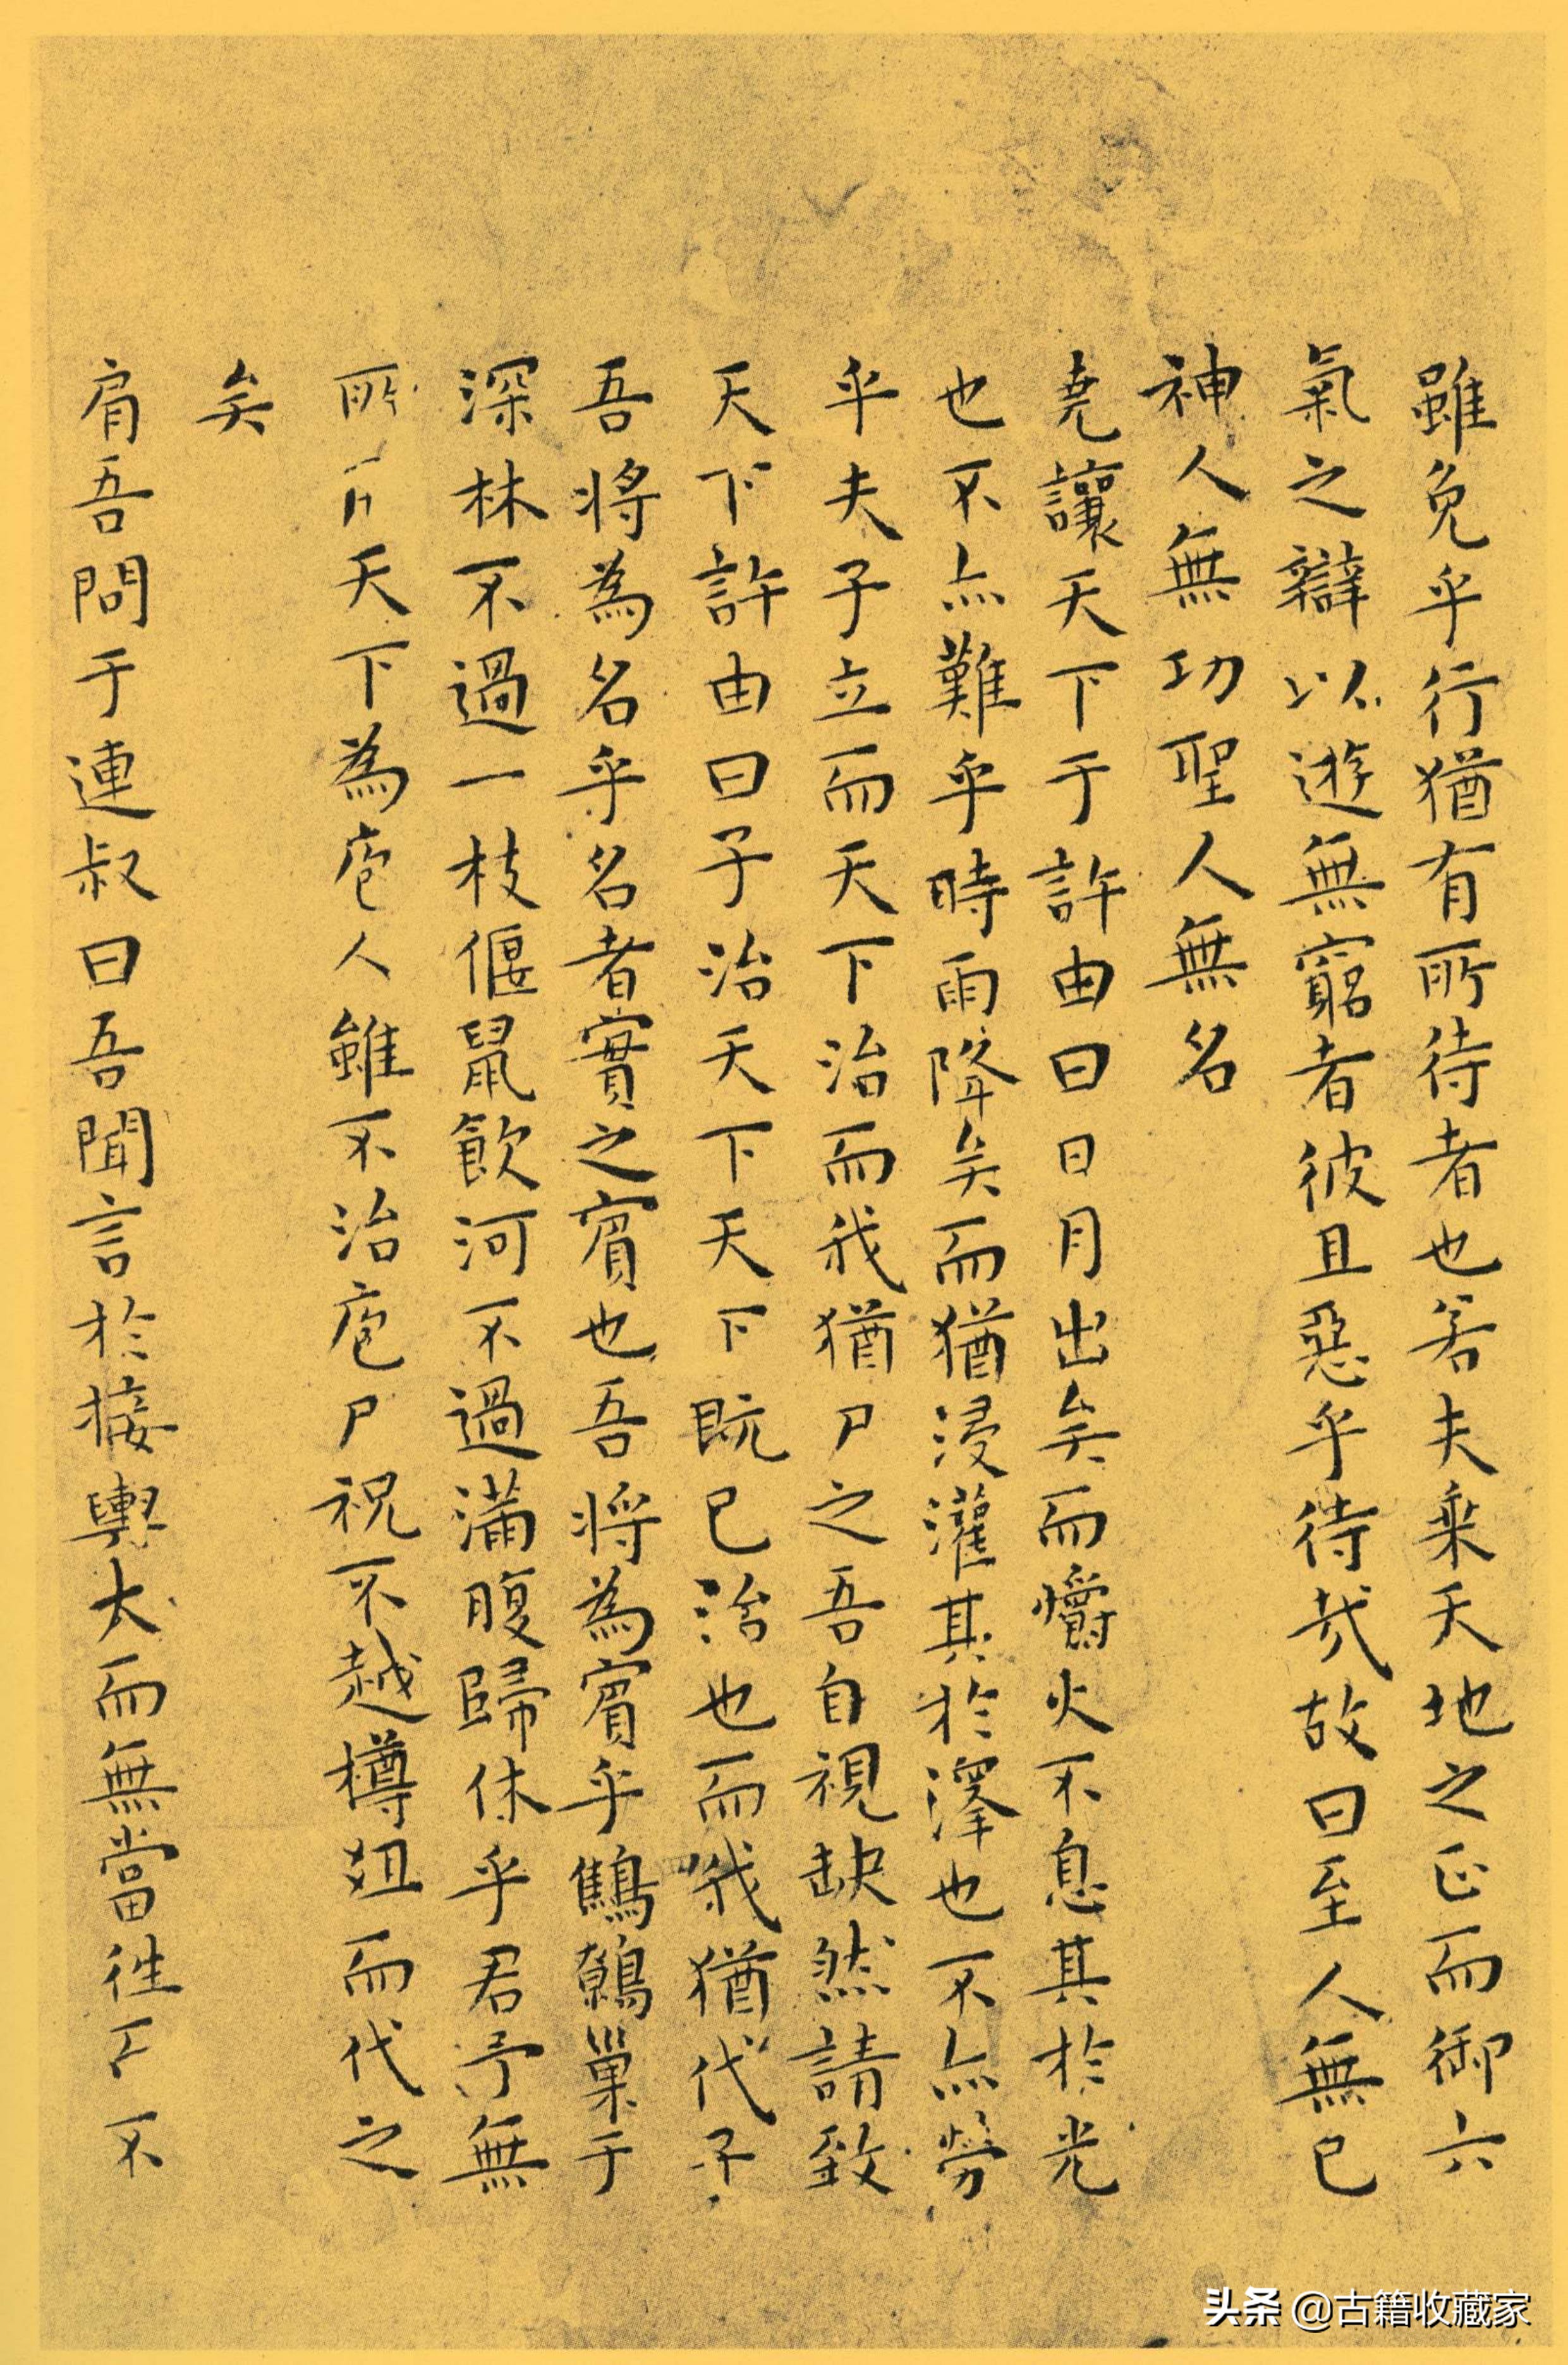 雖免乎行猶有所待者也若夫乘天地之正而御六
氣之辯以遊無窮者彼且惡乎待哉故曰至人無已
神人無功聖人無名
堯讓天下于許由曰日月出矣而爝火不息其於光
也不亦難乎時雨降矣而猶浸灌其於澤也不亦勞
乎夫子立而天下治而我猶尸之吾自視缺然請致
天下許由曰子治天下天下既已治也而我猶代子
吾將為名乎名者實之賓也吾將為賓乎鷦鷯巢于
深林不過一枝偃鼠飲河不過滿腹歸休乎君予無
所天下為庖人雖不治庖尸祝不越樽俎而代之
矣
肩吾問于連叔曰吾聞言於接輿大而無當往不
头条 @古籍收藏家